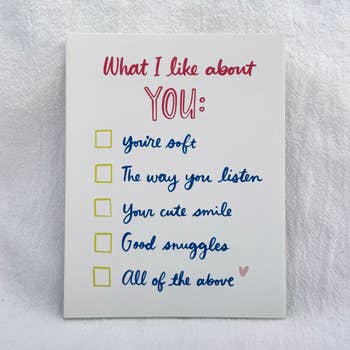 What I like about
YOU:
You're soft
The way you listen
Your cute smile
Good snuggles
All of the above